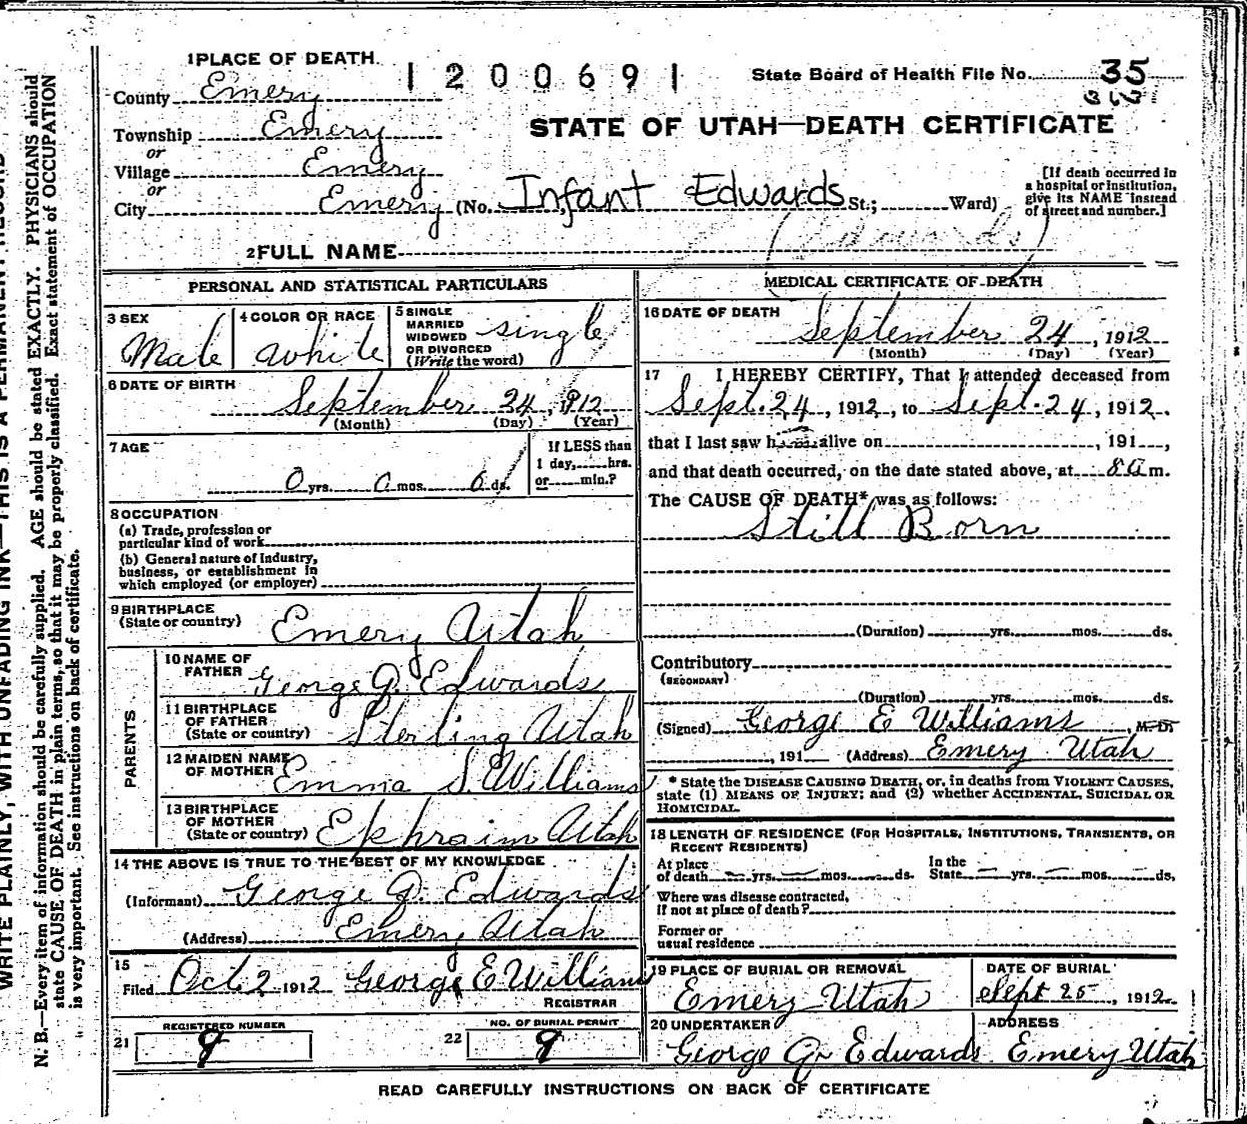 1 PLACE OF DEATH
1200691
State Board of Health File No. 35
County Emery
Township Emery
STATE OF UTAH—DEATH CERTIFICATE
or
Village Emery
or
City Emery (No. Infant Edwards St.; Ward)
[If death occurred in a hospital or institution, give its NAME instead of street and number.]
(Edwards)
2 FULL NAME
PERSONAL AND STATISTICAL PARTICULARS
3 SEX Male
4 COLOR OR RACE white
5 SINGLE MARRIED WIDOWED OR DIVORCED (Write the word) single
6 DATE OF BIRTH
September 24, 1912
(Month) (Day) (Year)
7 AGE
0 yrs. 0 mos. 0 ds.
If LESS than
1 day, hrs.
or min.?
8 OCCUPATION
(a) Trade, profession or
particular kind of work
(b) General nature of Industry,
business, or establishment in
which employed (or employer)
9 BIRTHPLACE
(State or country) Emery Utah
PARENTS
10 NAME OF
FATHER George G. Edwards
11 BIRTHPLACE
OF FATHER
(State or country) Sterling Utah
12 MAIDEN NAME
OF MOTHER Emma S. Williams
13 BIRTHPLACE
OF MOTHER
(State or country) Ephraim Utah
14 THE ABOVE IS TRUE TO THE BEST OF MY KNOWLEDGE
(Informant) George G. Edwards
(Address) Emery Utah
15
Filed Oct 2 1912 George E Williams
REGISTRAR
REGISTERED NUMBER
21 9
NO. OF BURIAL PERMIT
22 9
MEDICAL CERTIFICATE OF DEATH
16 DATE OF DEATH
September 24, 1912
(Month) (Day) (Year)
17 I HEREBY CERTIFY, That I attended deceased from
Sept. 24, 1912, to Sept. 24, 1912.
that I last saw h alive on , 191 ,
and that death occurred, on the date stated above, at 8 a m.
The CAUSE OF DEATH* was as follows:
Still Born
(Duration) yrs. mos. ds.
Contributory
(SECONDARY)
(Duration) yrs. mos. ds.
(Signed) George E Williams, M. D.
, 191 (Address) Emery Utah
* State the DISEASE CAUSING DEATH, or, in deaths from VIOLENT CAUSES,
state (1) MEANS OF INJURY; and (2) whether ACCIDENTAL, SUICIDAL OR
HOMICIDAL.
18 LENGTH OF RESIDENCE (FOR HOSPITALS, INSTITUTIONS, TRANSIENTS, OR
RECENT RESIDENTS)
At place In the
of death — yrs. — mos. ds. State — yrs. — mos. — ds.
Where was disease contracted,
If not at place of death?
Former or
usual residence
19 PLACE OF BURIAL OR REMOVAL DATE OF BURIAL
Emery Utah Sept 25, 1912
20 UNDERTAKER ADDRESS
George G Edwards Emery Utah
READ CAREFULLY INSTRUCTIONS ON BACK OF CERTIFICATE
WRITE PLAINLY, WITH UNFADING INK—THIS IS A PERMANENT RECORD
N. B.—Every item of information should be carefully supplied. AGE should be stated EXACTLY. PHYSICIANS should
state CAUSE OF DEATH in plain terms, so that it may be properly classified. Exact statement of OCCUPATION
is very important. See instructions on back of certificate.